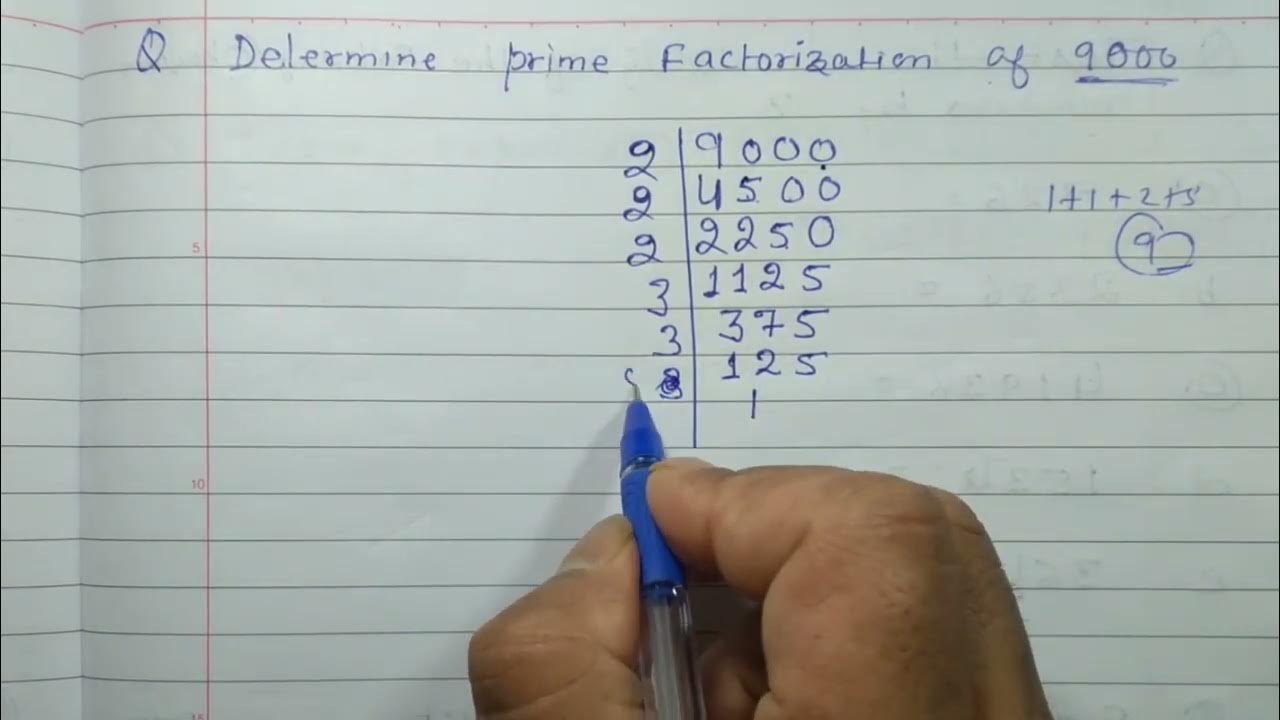 Q Determine prime Factorization of 9000
2 | 9000
2 | 4500
2 | 2250
3 | 1125
3 | 375
125
1
1+1+2+5
9
5
10
15